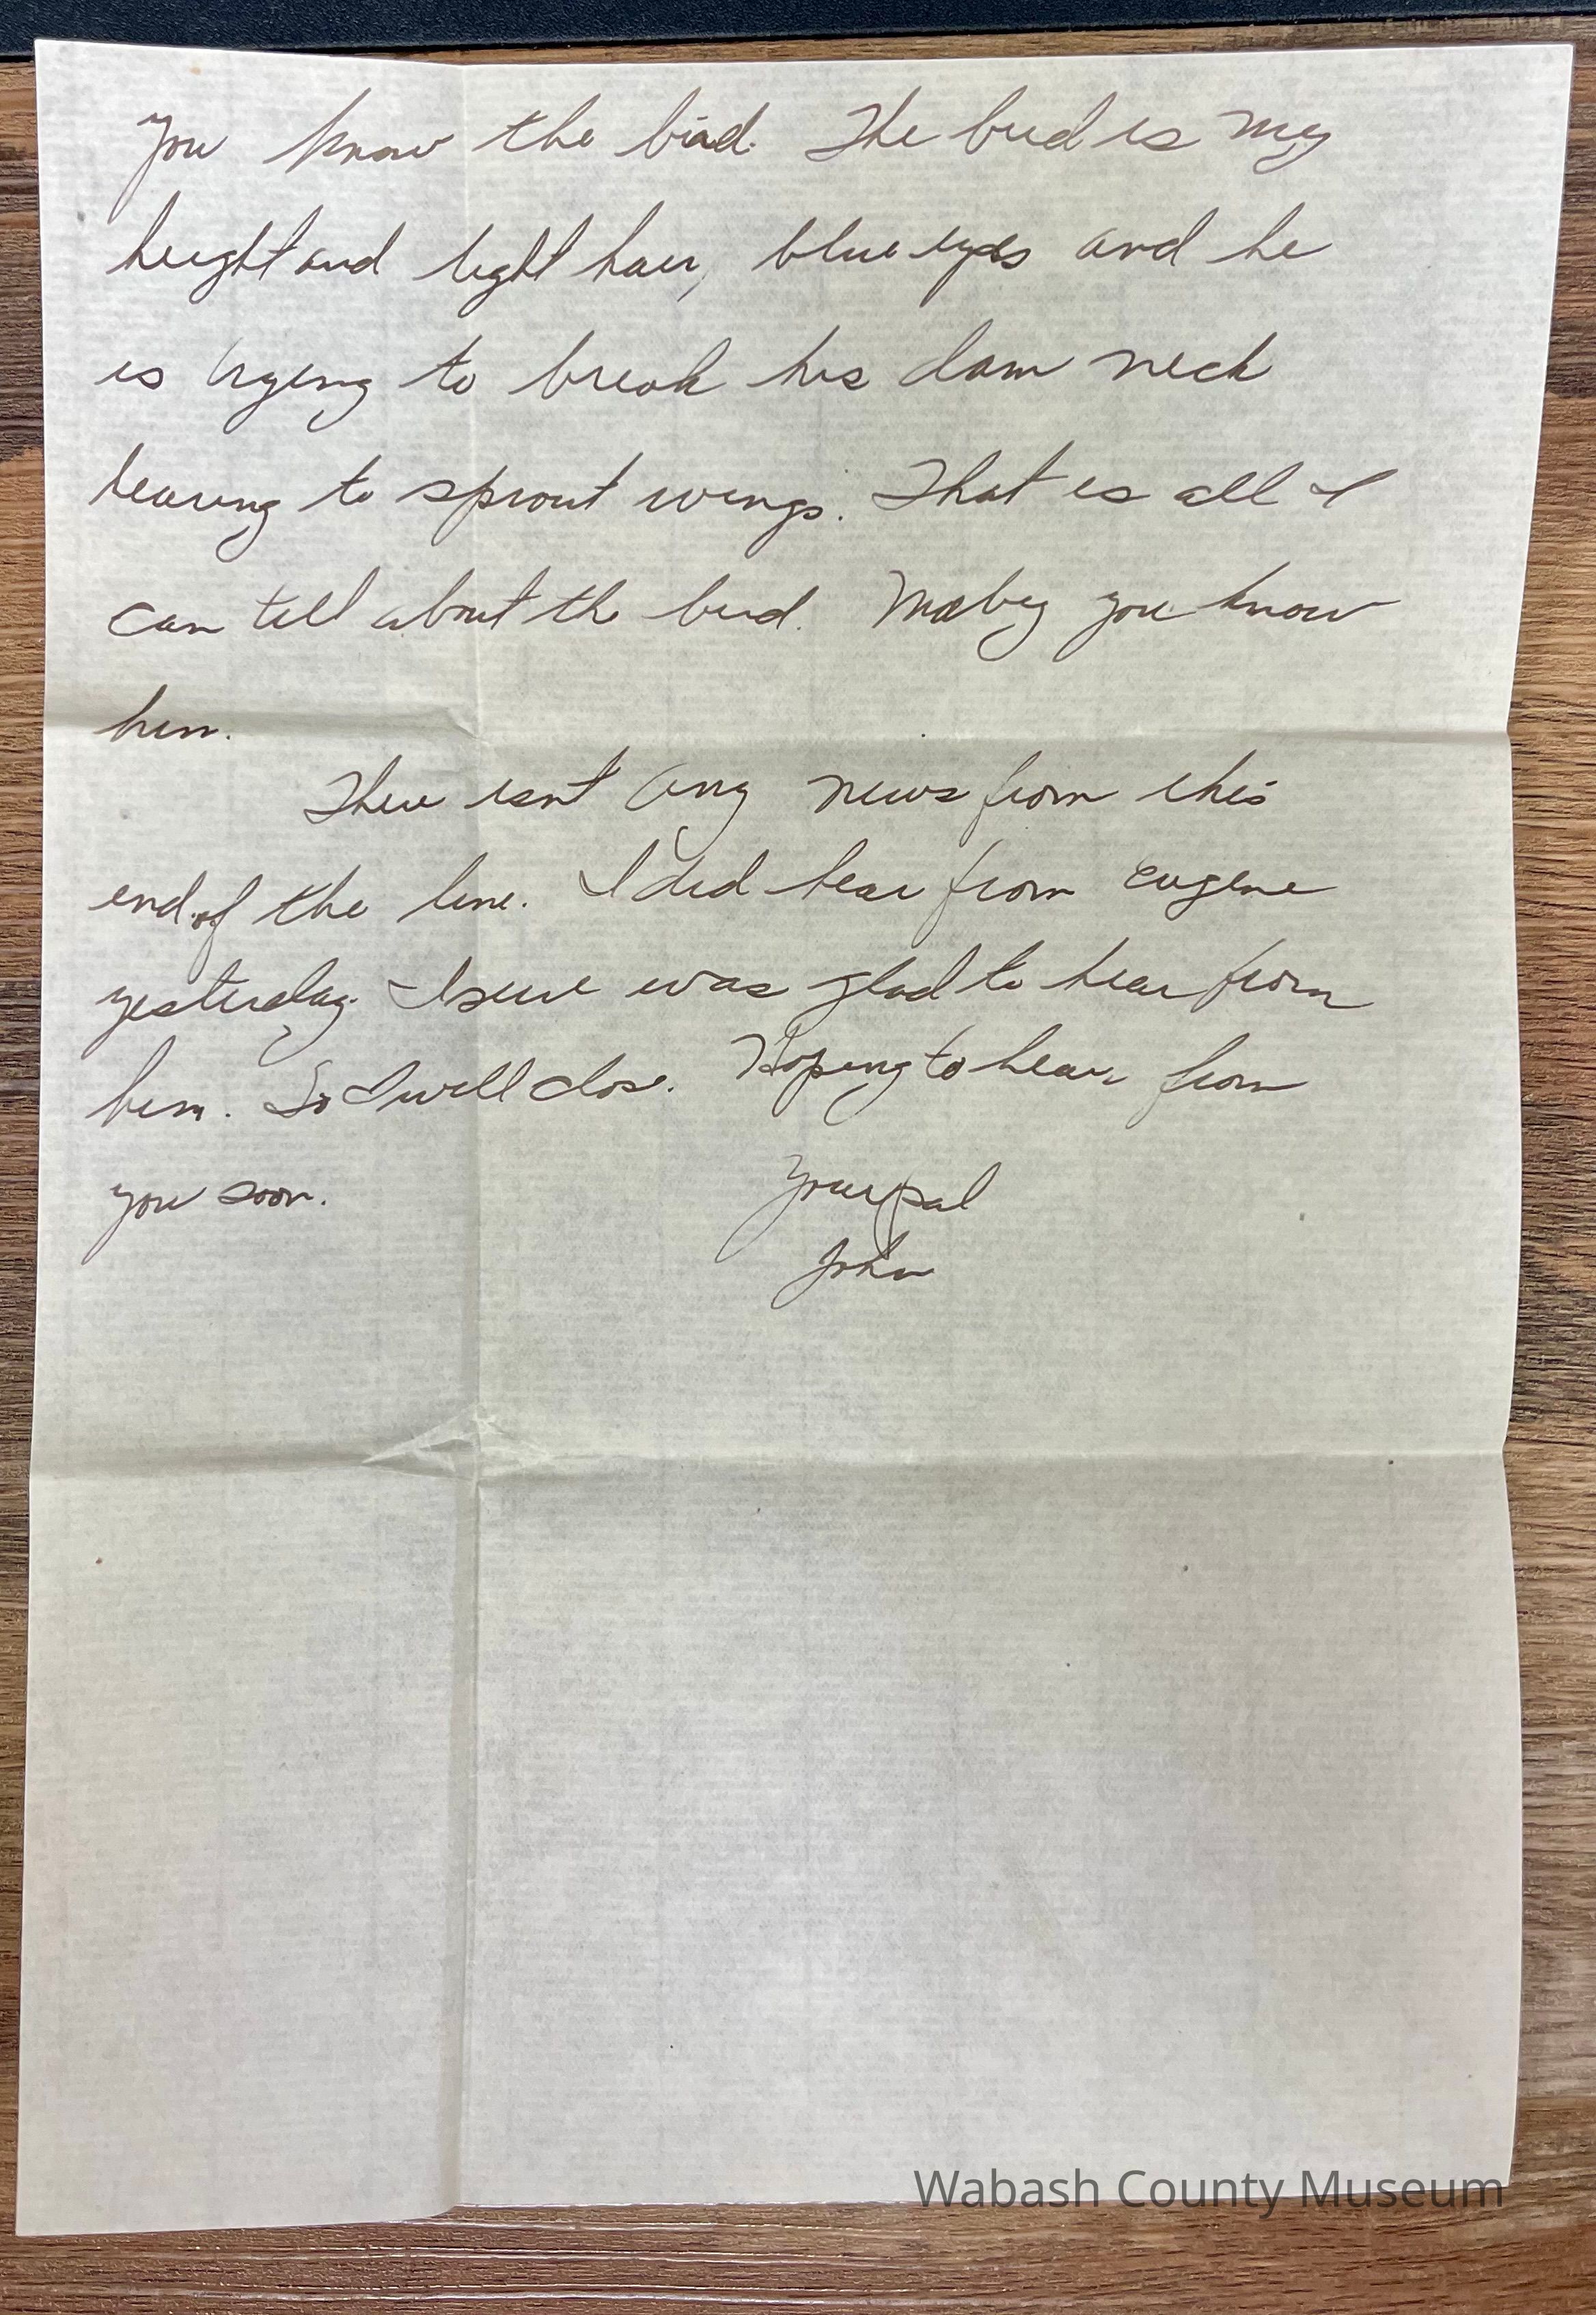 you know the bird. The bird is my
height and light hair, blue eyes and he
is trying to break his dam neck
learing to sprout wings. That is all I
can tell about the bird. Mabey you know
him.
There isnt any news from this
end of the line. I did hear from Eugene
yesterday. I sure was glad to hear from
him. So I will close. Hoping to hear from
you soon.
Your pal
John
Wabash County Museum